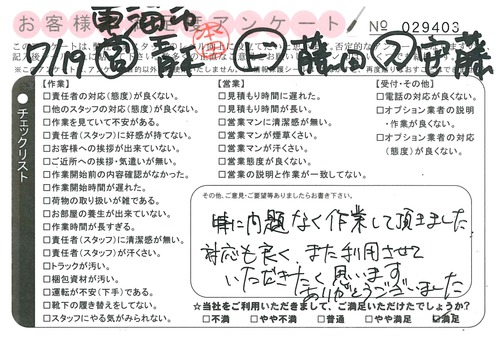 お客様
アンケート
東海市
№ 029403
7/19
チェックリスト
【作業】
□責任者の対応(態度)が良くない。
□他のスタッフの対応(態度)が良くない。
□作業を見ていて不安がある。
□責任者(スタッフ)に好感が持てない。
□お客様への挨拶が出来ていない。
□ご近所への挨拶・気遣いが無い。
□作業開始前の内容確認がなかった。
□作業開始時間が遅れた。
□荷物の取り扱いが雑である。
□お部屋の養生が出来ていない。
□作業時間が長すぎる。
□責任者(スタッフ)に清潔感が無い。
□責任者(スタッフ)が汗くさい。
□トラックが汚い。
□梱包資材が汚い。
□運転が不安(下手)である。
□靴下の履き替えをしてない。
□スタッフにやる気がみられない。
【営業】
□見積もり時間に遅れた。
□見積もり時間が長い。
□営業マンに清潔感が無い。
□営業マンが煙草くさい。
□営業マンが汗くさい。
□営業態度が良くない。
□営業の説明と作業が一致してない。
【受付・その他】
□電話の対応が良くない。
□オプション業者の説明
・作業が良くない。
□オプション業者の対応
(態度)が良くない。
その他、ご意見・ご要望等ありましたらお書き下さい。
特に問題なく作業して頂きました
対応も良く、また利用させて
いただきたく思います
ありがとうございました
☆当社をご利用いただきまして、ご満足いただけたでしょうか?
□不満 □やや不満 □普通 □やや満足 □満足